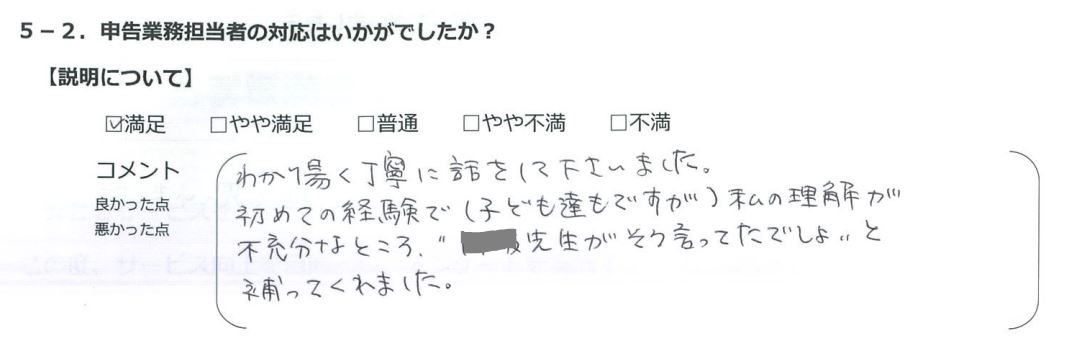 5－2．申告業務担当者の対応はいかがでしたか？
【説明について】
☑満足 □やや満足 □普通 □やや不満 □不満
コメント
良かった点
悪かった点
わかり易く丁寧に話をして下さいました。
初めての経験で(子ども達もですが)私の理解が
不充分なところ、"先生がそう言ってたでしょ"と
補ってくれました。